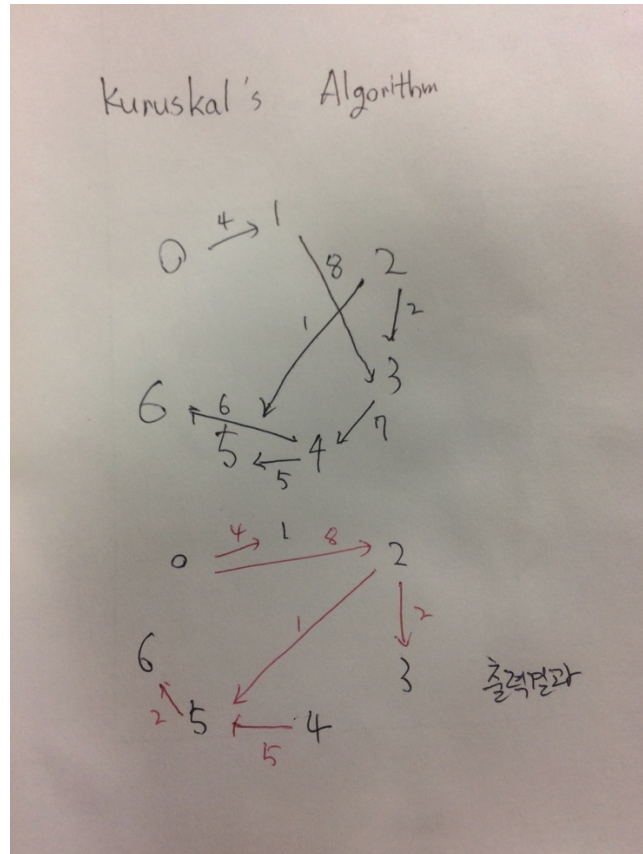 Kuruskal's Algorithm
4 1
0 8 2
1 2
3
6 6 7
5 4
5
4 1 8
0 2
1 2
6 3 출력결과
2 5 4
5